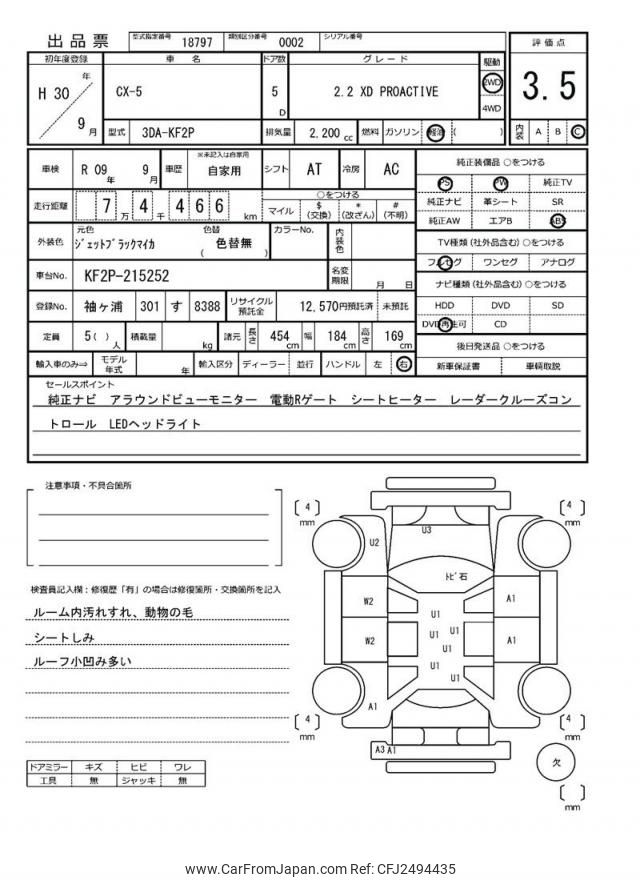 出品票 型式指定番号 18797 類別区分番号 0002 シリアル番号
初年度登録 車名 ドア数 グレード 駆動 評価点
H 30 年 9 月 CX-5 5 D 2.2 XD PROACTIVE 2WD 4WD 3.5
型式 3DA-KF2P 排気量 2,200 cc 燃料 ガソリン 軽油 ( ) 内装 A B C
車検 R 09 年 9 月 車歴 ※未記入は自家用 自家用 シフト AT 冷房 AC
走行距離 7 万 4 千 4 6 6 km ○をつける マイル $ (交換) * (改ざん) # (不明)
外装色 元色 ジェットブラックマイカ 色替 ( 色替無 ) カラーNo. 内装色
車台No. KF2P-215252 名変期限 月 日
登録No. 袖ヶ浦 301 す 8388 リサイクル預託金 12,570円預託済 未預託
定員 5( ) 人 積載量 kg 諸元 長さ 454 cm 幅 184 cm 高さ 169 cm
輸入車のみ⇒ モデル年式 年 輸入区分 ディーラー 並行 ハンドル 左 右
純正装備品 ○をつける
PS PW 純正TV
純正ナビ 革シート SR
純正AW エアB ABS
TV種類(社外品含む)○をつける
フルセグ ワンセグ アナログ
ナビ種類(社外品含む)○をつける
HDD DVD SD
DVD再生可 CD
後日発送品 ○をつける
新車保証書 車輌取説
セールスポイント
純正ナビ アラウンドビューモニター 電動Rゲート シートヒーター レーダークルーズコン
トロール LEDヘッドライト
注意事項・不具合箇所
検査員記入欄:修復歴「有」の場合は修復箇所・交換箇所を記入
ルーム内汚れすれ、動物の毛
シートしみ
ルーフ小凹み多い
ドアミラー キズ ヒビ ワレ
工具 無 ジャッキ 無
[ 4 ] mm
[ 4 ] mm
U3
U2
トビ石
W2 A1
U1
W2 U1 U1 A1
U1
U1
U1
A1
[ 4 ] mm
[ 4 ] mm
A3 A1
欠
[ ] mm
www.CarFromJapan.com Ref: CFJ2494435